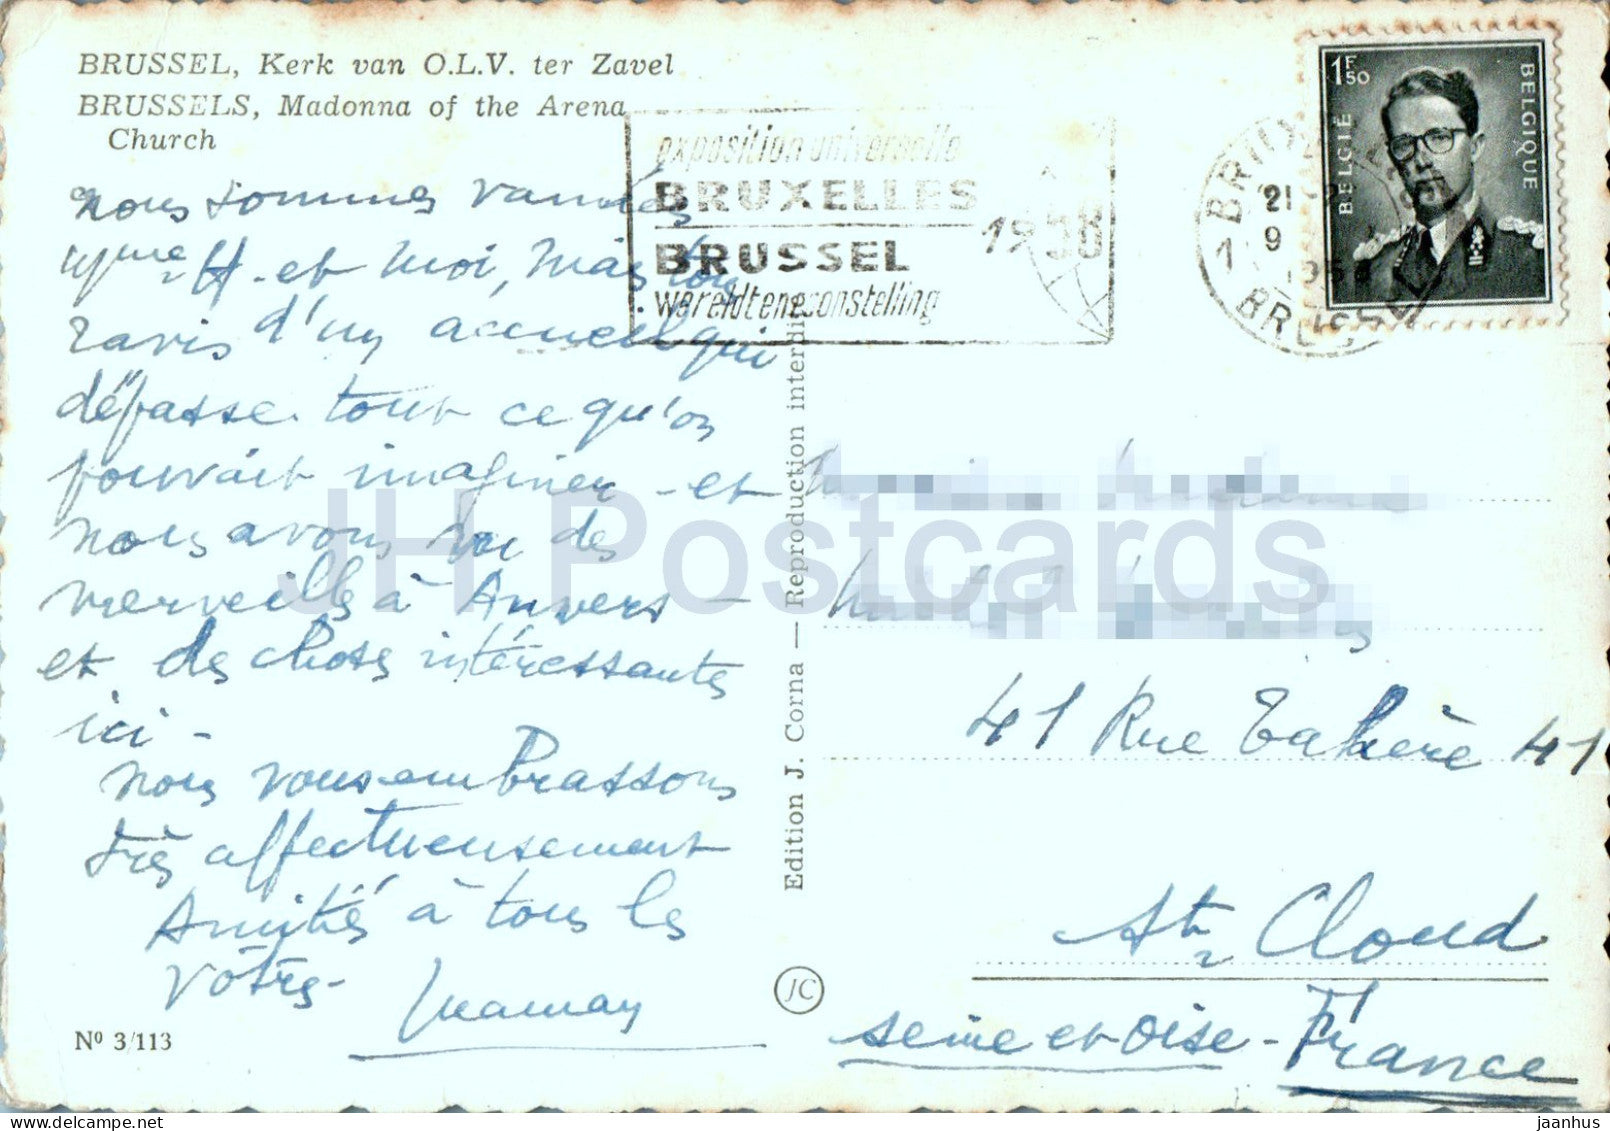 BRUSSEL, Kerk van O.L.V. ter Zavel
BRUSSELS, Madonna of the Arena
Church
exposition universelle
BRUXELLES
BRUSSEL
1958
wereldtentoonstelling
1F50
BELGIË
BELGIQUE
21
9
BRUSSEL
nous sommes vannés
Mme H. et moi, mais tous
ravis d'un accueil qui
dépasse tout ce qu'on
pouvait imaginer - et
nous avons vu des
merveilles à Anvers -
et des choses intéressantes
ici -
nous vous embrassons
très affectueusement
Amitiés à tous les
vôtres -
Nº 3/113
Edition J. Corna — Reproduction interdite
JC
41 Rue Tahère 41
St Cloud
Seine et Oise - France
JH Postcards
jaanhus